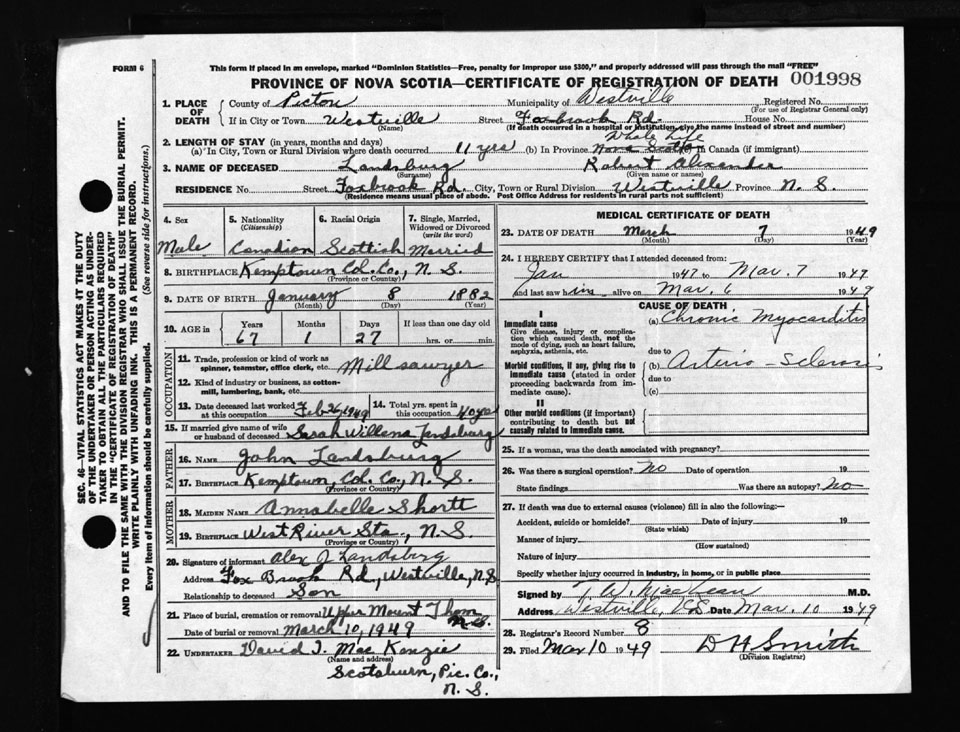 FORM 6
This form if placed in an envelope, marked "Dominion Statistics—Free, penalty for improper use $300," and properly addressed will pass through the mail "FREE"
PROVINCE OF NOVA SCOTIA—CERTIFICATE OF REGISTRATION OF DEATH 001998
1. PLACE OF DEATH County of Pictou Municipality of Westville Registered No.
(For use of Registrar General only)
If in City or Town Westville Street Foxbrook Rd. House No.
(Name) (If death occurred in a hospital or institution, give the name instead of street and number)
2. LENGTH OF STAY (in years, months and days) Whole Life
(a) In City, Town or Rural Division where death occurred 11 yrs (b) In Province Nova Scotia (c) In Canada (if immigrant)
3. NAME OF DECEASED Landsburg Robert Alexander
(Surname) (Given name or names)
RESIDENCE No. Street Foxbrook Rd. City, Town or Rural Division Westville Province N. S.
(Residence means usual place of abode. Post Office Address for residents in rural parts not sufficient)
4. Sex Male
5. Nationality (Citizenship) Canadian
6. Racial Origin Scottish
7. Single, Married, Widowed or Divorced (write the word) Married
8. BIRTHPLACE Kemptown Col. Co., N. S.
(Province or Country)
9. DATE OF BIRTH January 8 1882
(Month) (Day) (Year)
10. AGE in Years Months Days If less than one day old
67 1 27 hrs. or min.
OCCUPATION
11. Trade, profession or kind of work as spinner, teamster, office clerk, etc. Mill sawyer
12. Kind of industry or business, as cotton-mill, lumbering, bank, etc.
13. Date deceased last worked at this occupation Feb 26, 1949
14. Total yrs. spent in this occupation 40 yrs
15. If married give name of wife or husband of deceased Sarah Willena Landsburg
FATHER
16. Name John Landsburg
17. Birthplace Kemptown, Col. Co., N. S.
(Province or Country)
MOTHER
18. MAIDEN NAME Annabelle Shortt
19. BIRTHPLACE West River Sta., N. S.
(Province or Country)
20. Signature of informant Alex J Landsberg
Address Fox Brook Rd., Westville, N.S
Relationship to deceased Son
21. Place of burial, cremation or removal Upper Mount Thom N.S.
Date of burial or removal March 10, 1949
22. UNDERTAKER David T. MacKenzie
(Name and address)
Scotsburn, Pic. Co., N. S.
MEDICAL CERTIFICATE OF DEATH
23. DATE OF DEATH March 7 1949
(Month) (Day) (Year)
24. I HEREBY CERTIFY that I attended deceased from:
Jan 1947 to Mar. 7 1949
and last saw him alive on Mar. 6 1949
CAUSE OF DEATH
I
Immediate cause
Give disease, injury or complication which caused death, not the mode of dying, such as heart failure, asphyxia, asthenia, etc.
(a) Chronic Myocarditis
due to
Morbid conditions, if any, giving rise to immediate cause (stated in order proceeding backwards from immediate cause).
(b) Arterio-Sclerosis
due to
(c)
II
Other morbid conditions (if important) contributing to death but not causally related to immediate cause.
25. If a woman, was the death associated with pregnancy?
26. Was there a surgical operation? No Date of operation 19
State findings Was there an autopsy? No
27. If death was due to external causes (violence) fill in also the following:—
Accident, suicide or homicide? Date of injury 19
(State which)
Manner of injury
(How sustained)
Nature of injury
Specify whether injury occurred in industry, in home, or in public place
Signed by W. MacKean M.D.
Address Westville, N.S. Date Mar. 10 1949
28. Registrar's Record Number 8
29. Filed Mar 10 1949 D H Smith
(Division Registrar)
SEC. 46—VITAL STATISTICS ACT MAKES IT THE DUTY
OF THE UNDERTAKER OR PERSON ACTING AS UNDER-
TAKER TO OBTAIN ALL THE PARTICULARS REQUIRED
IN THE "CERTIFICATE OF REGISTRATION OF DEATH"
AND TO FILE THE SAME WITH THE DIVISION REGISTRAR WHO SHALL ISSUE THE BURIAL PERMIT.
WRITE PLAINLY WITH UNFADING INK. THIS IS A PERMANENT RECORD.
Every item of information should be carefully supplied. (See reverse side for instructions.)